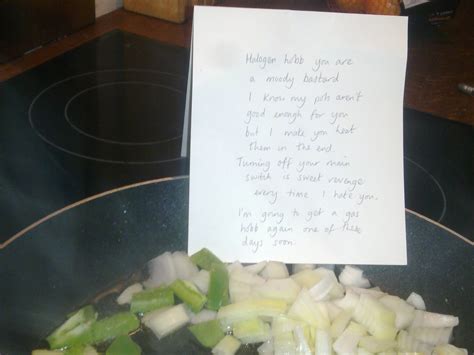 Halogen hobb you are
a moody bastard
I know my pots aren't
good enough for you
but I make you heat
them in the end.
Turning off your main
switch is sweet revenge
every time I hate you.
I'm going to get a gas
hobb again one of these
days soon.